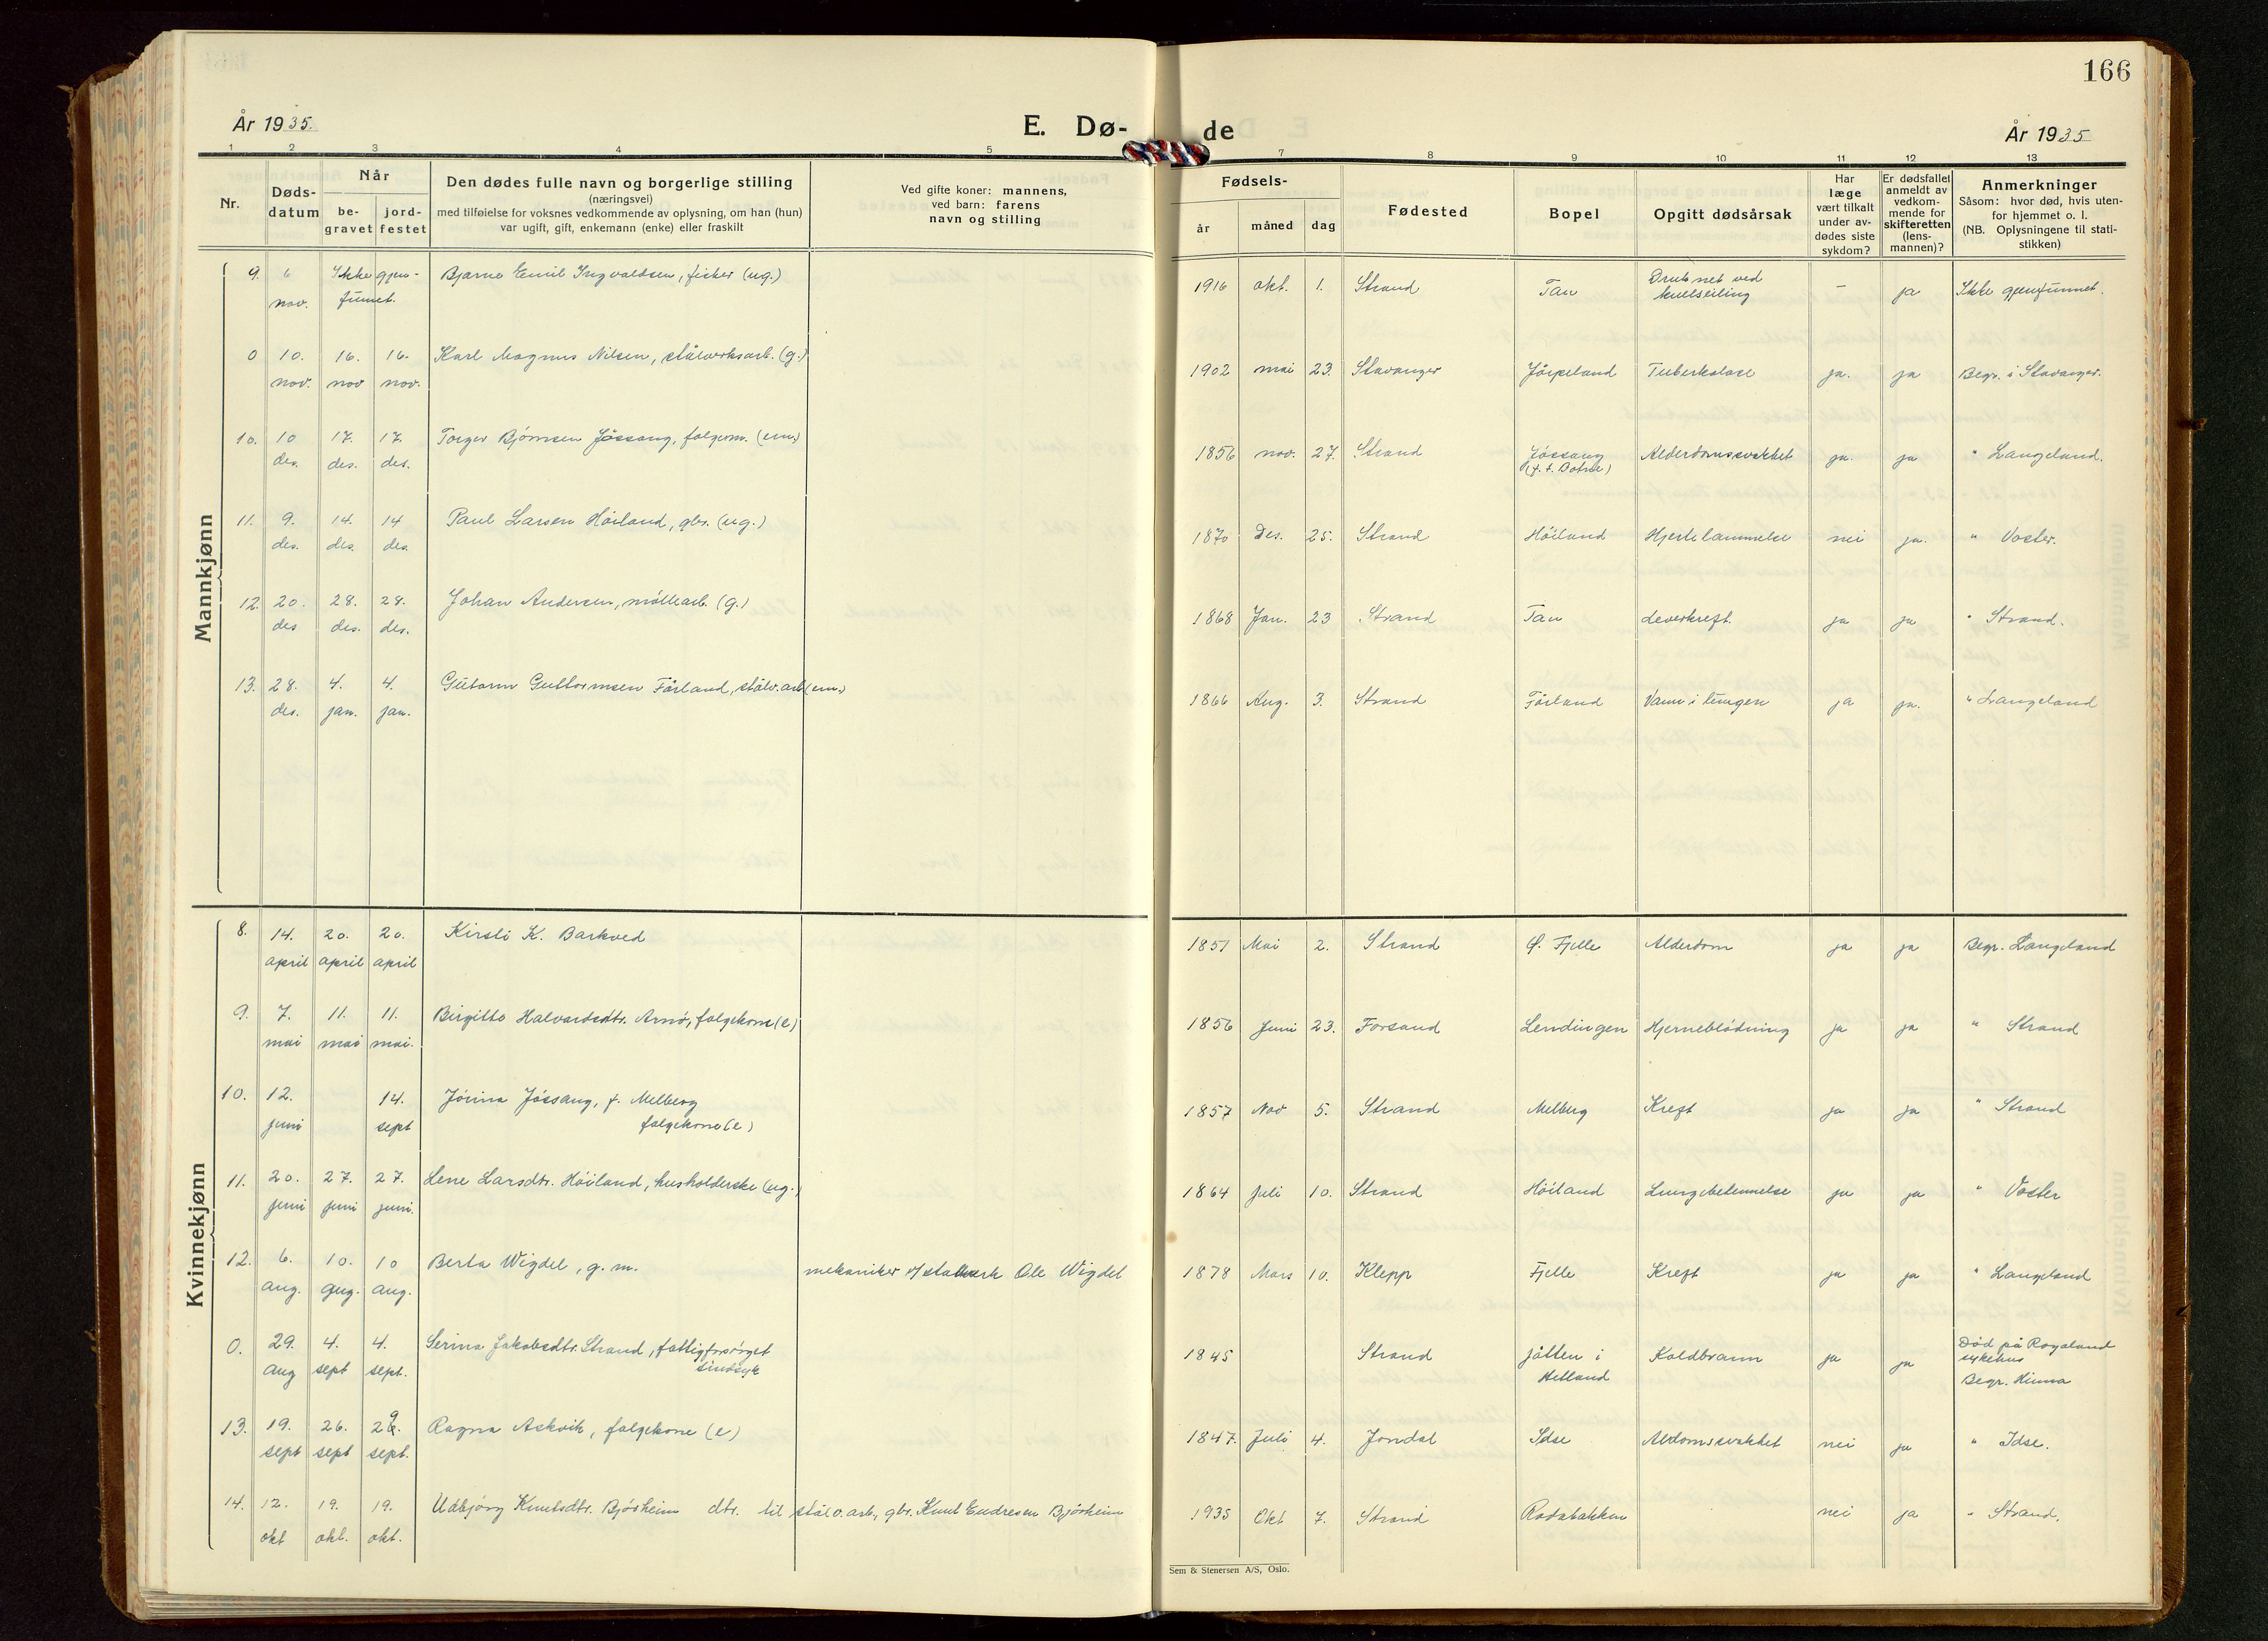 166
År 1935.
E. Dø-
de
År 1935
1 2 3 4 5 7 8 9 10 11 12 13
Nr.
Døds-
datum
Når
be-
gravet
jord-
festet
Den dødes fulle navn og borgerlige stilling
(næringsvei)
med tilføielse for voksnes vedkommende av oplysning, om han (hun)
var ugift, gift, enkemann (enke) eller fraskilt
Ved gifte koner: mannens,
ved barn: farens
navn og stilling
Fødsels-
år måned dag
Fødested
Bopel
Opgitt dødsårsak
Har
læge
vært tilkalt
under av-
dødes siste
sykdom?
Er dødsfallet
anmeldt av
vedkom-
mende for
skifteretten
(lens-
mannen)?
Anmerkninger
Såsom: hvor død, hvis uten-
for hjemmet o. l.
(NB. Oplysningene til stati-
stikken)
Mannkjønn
9. 6 Ikke gjen- Bjarne Emil Ingvaldsen, fisker (ug.) 1916 okt. 1. Strand Tau Druknet ved - ja Ikke gjenfunnet.
nov. funnet. kullseiling
0 10. 16. 16. Karl Magnus Nilsen, stålverksarb. (g.) 1902 mai 23. Stavanger Jörpeland Tuberkulose ja. ja Begr. i Stavanger.
nov. nov nov.
10. 10 17. 17. Torger Bjørnsen Jössang, folgem. (em.) 1856 nov. 27. Strand Jössang Alderdomssvakhet ja. ja " Langeland.
des. des. des. (f. t. Botne)
11. 9. 14. 14 Paul Larsen Höiland, gbr. (ug.) 1870 Des. 25. Strand Höiland Hjertelammelse nei ja. " Voster.
des. des. des.
12. 20. 28. 28. Johan Andersen, möllearb. (g.) 1868 Jan. 23 Strand Tau Leverkreft ja ja " Strand.
des des. des.
13. 28. 4. 4. Gutorm Guttormsen Förland, stålv.arb (em.) 1866 Aug. 3. Strand Förland Vann i lungen ja ja. " Langeland
des. jan. jan.
Kvinnekjønn
8. 14. 20. 20. Kirsti K. Barkved 1851 Mai 2. Strand Ö. Fjelle Alderdom ja ja Begr. Langeland
april april april
9. 7. 11. 11. Birgitte Halvardsdtr. Arnö, folgekone (e) 1856 Juni 23. Forsand Lendingen Hjerneblödning ja ja " Strand
mai mai mai.
10. 12. 14. Jörina Jössang, f. Melberg 1857 Nov 5. Strand Melberg Kreft ja ja " Strand
juni sept folgekone (e)
11. 20. 27. 27. Lene Larsdtr. Höiland, husholderske (ug.) 1864 Juli 10. Strand Höiland Lungebetennelse ja ja " Voster
juni juni juni.
12. 6. 10. 10 Berta Wigdel, g. m. mekaniker v/ stalverk Ole Wigdel 1878 Mars 10. Klepp Fjelle Kreft ja ja " Langeland
aug. aug. aug.
0. 29. 4. 4. Serina Jakobsdtr. Strand, fattigforsörget 1845 Strand Jåtten i Koldbrann ja ja Död på Rogaland
aug sept sept. sindsyk Hetland sykehus
Begr. Hinna
13. 19. 26. 29. Ragna Askvik, folgekone (e) 1847. Juli 4. Jondal Idse Aldomssvakhet nei ja " Idse.
sept sept sept.
14. 12. 19. 19. Udbjörg Knutsdtr. Bjørheim dtr. til stålv.arb., gbr. Knut Endresen Bjørheim 1935 Okt 7. Strand nei ja " Strand.
okt okt. okt.
Sem & Stenersen A/S, Oslo.